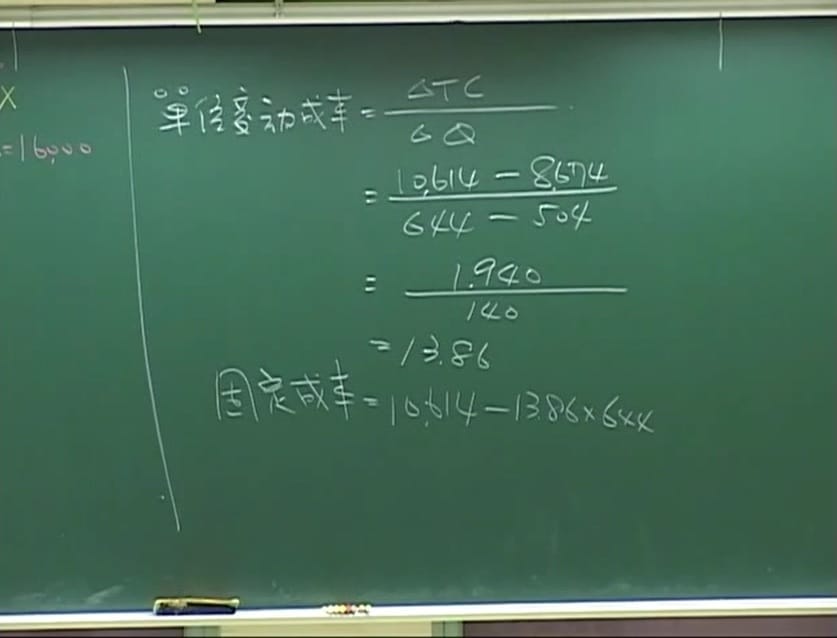 X
=16,000
單位变动成本=ΔTC/ΔQ
=10,614-8,674/644-504
=1,940/140
=13.86
固定成本=10,614-13.86×644